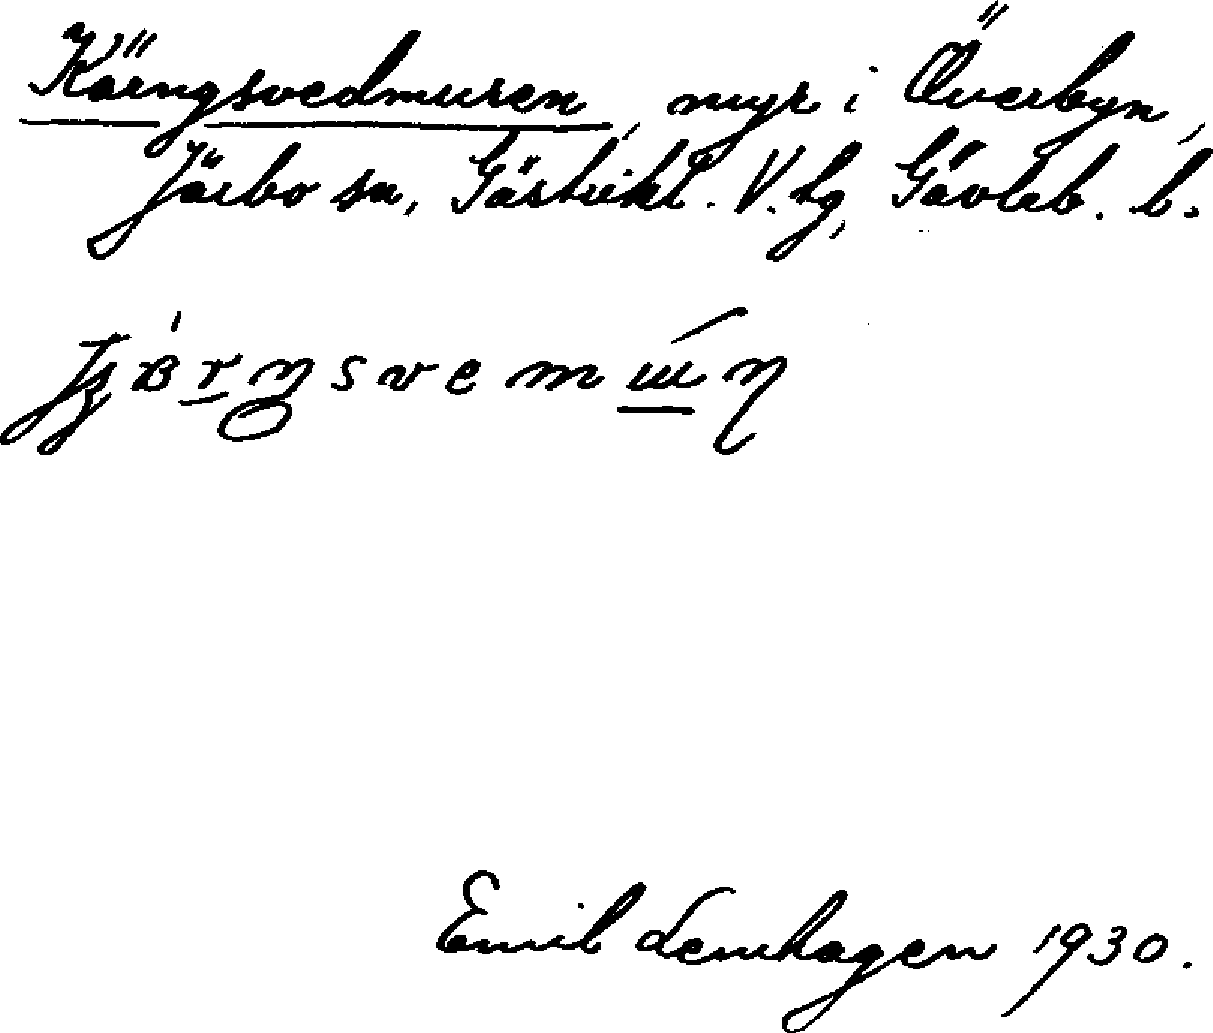 Kärngsvedmuren, myr i Överbyn,
Järbo sn, Gästrikl. V. tg, Gävleb. l.
Emil Lemhagen 1930.